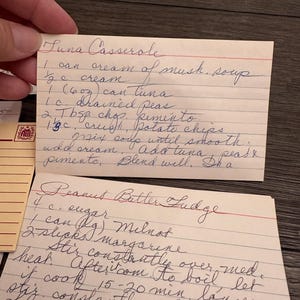 Tuna Casserole
1 can cream of mush. soup
½ c cream
1 (6 oz) can tuna
1 c. drained peas
2 Tbsp chop. pimento
c. crush. potato chips
mix soup until smooth.
add cream. add tuna, peas &
pimento, Blend well.
Peanut Butter Fudge
4 c. sugar
1 can (lg) Milnot
2 sticks margarine
Stir constantly over med.
heat. After com to boil, let
it cook 15-20 min.
stir